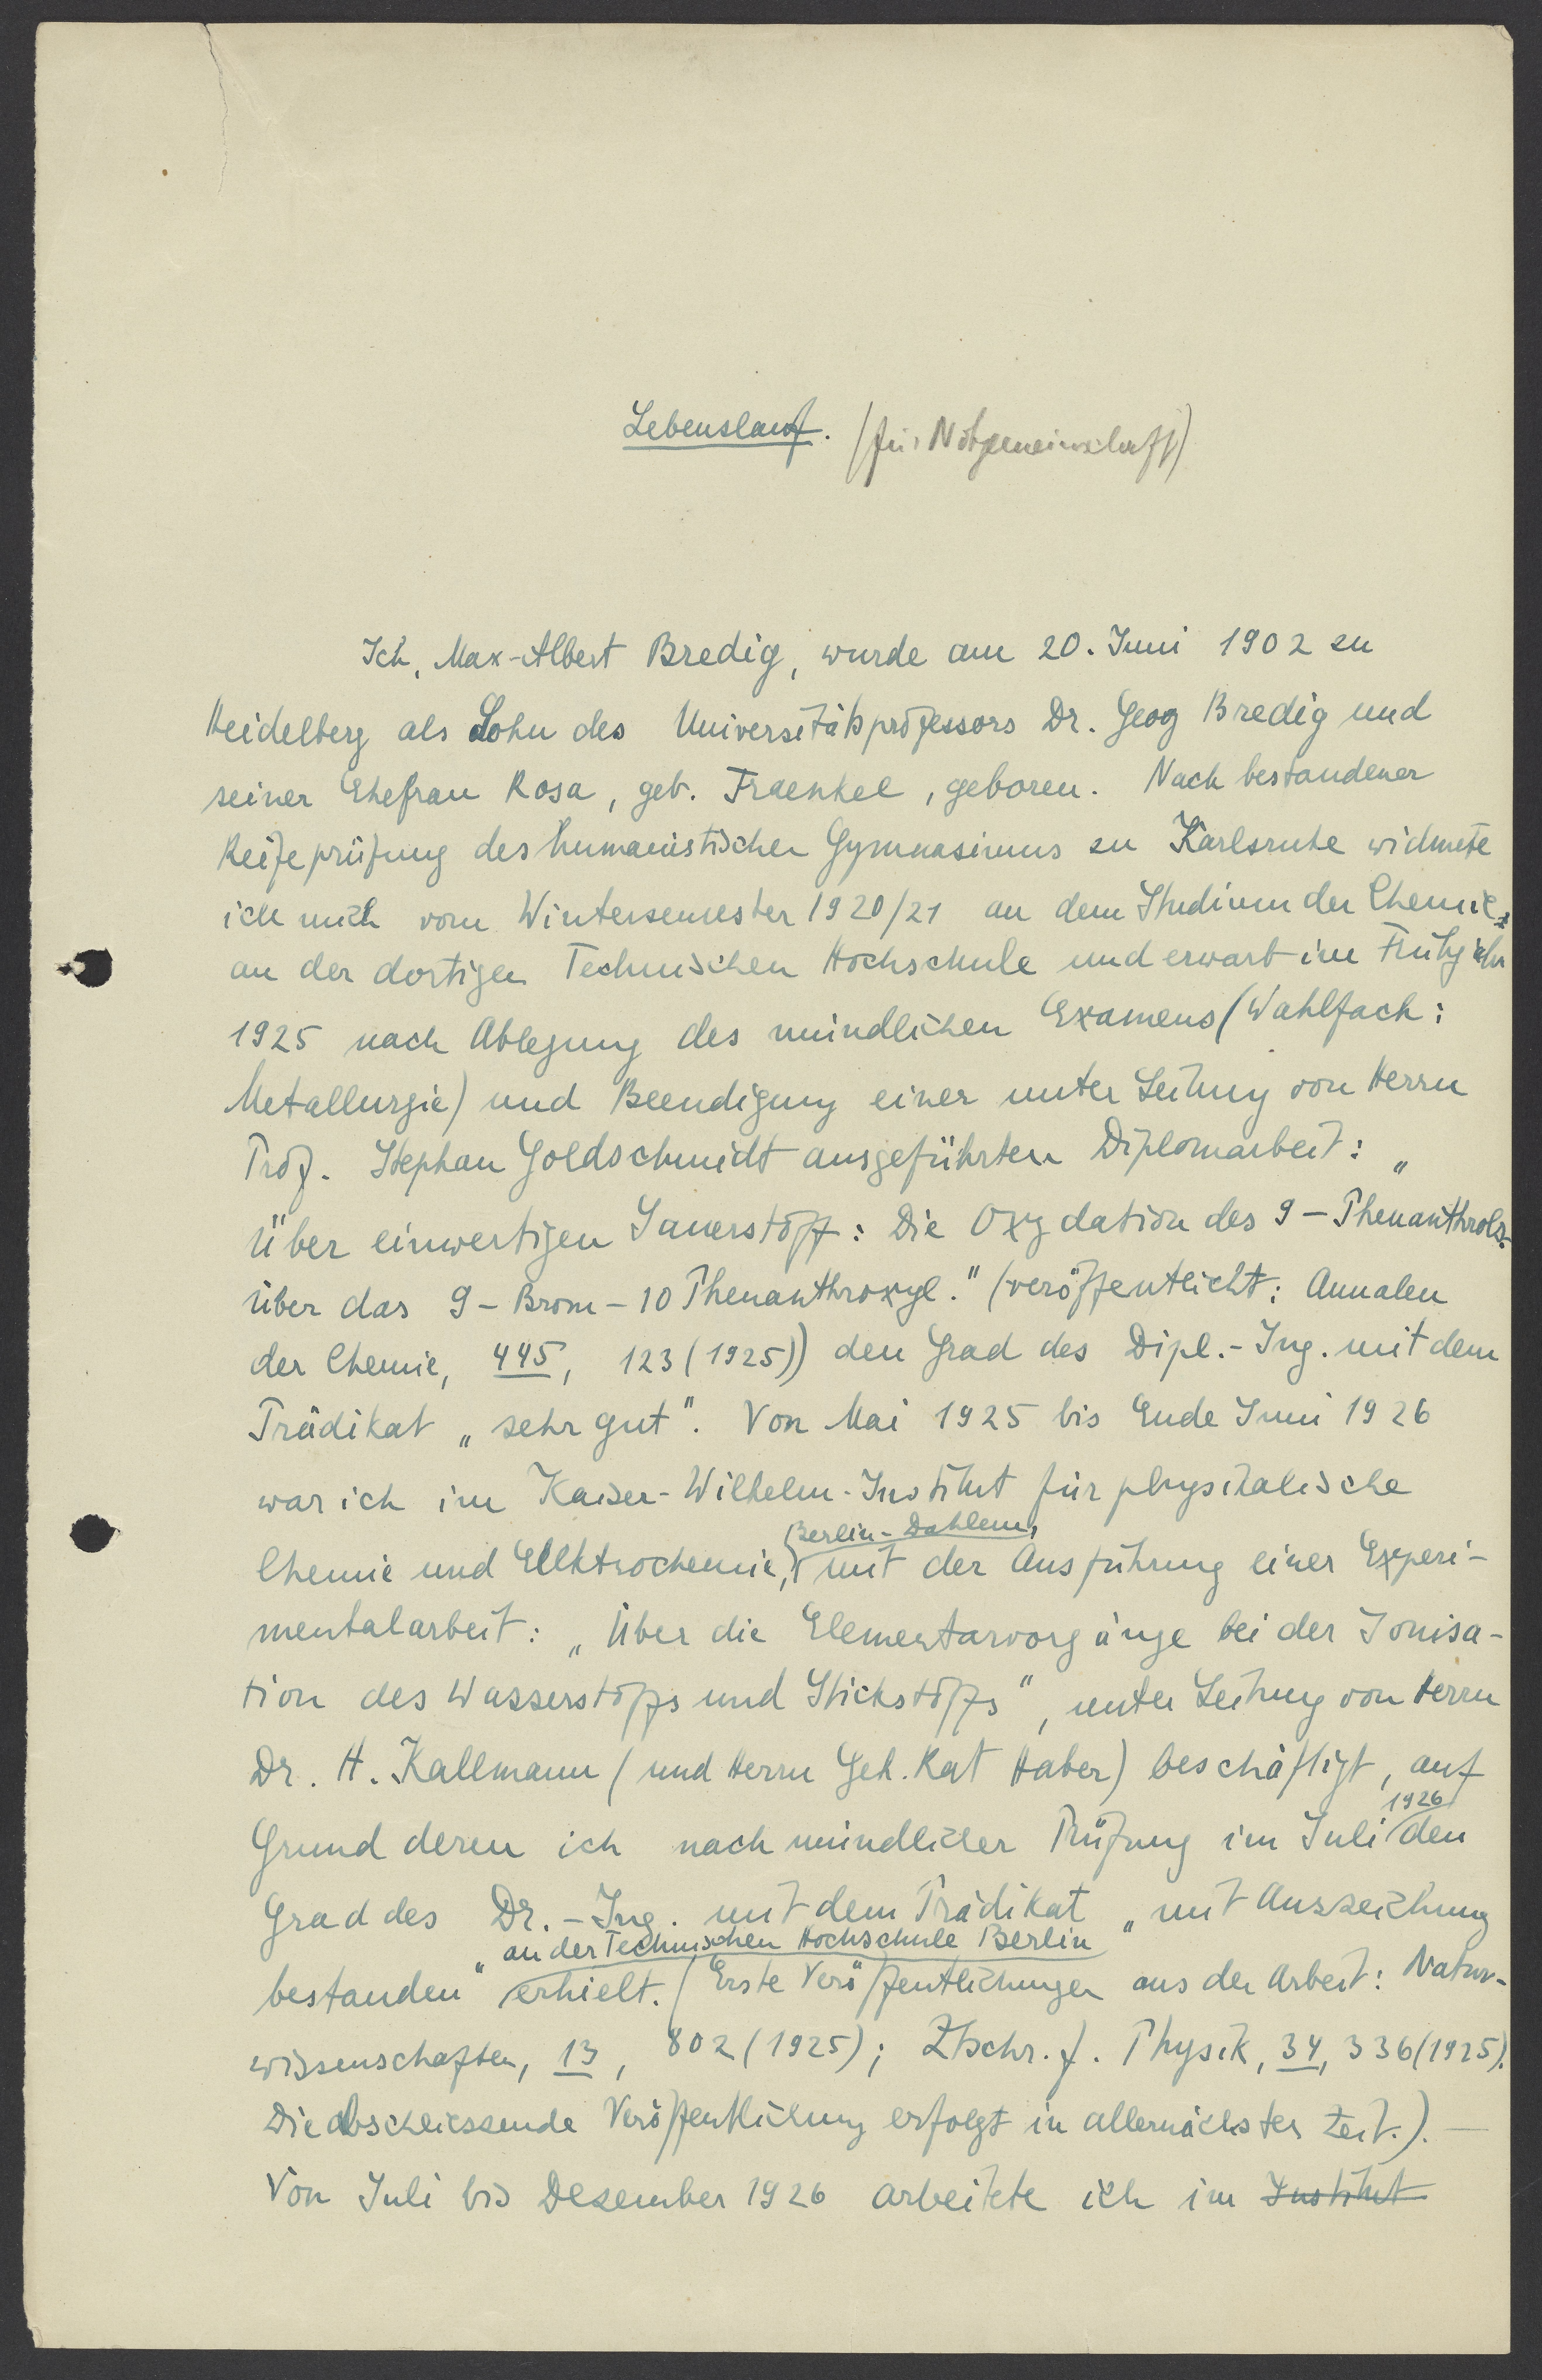 Lebenslauf. (für Notgemeinschaft)
Ich, Max-Albert Bredig, wurde am 20. Juni 1902 zu
Heidelberg als Sohn des Universitätsprofessors Dr. Geog Bredig und
seiner Ehefrau Rosa, geb. Fraenkel, geboren. Nach bestandener
Reifeprüfung des humanistischen Gymnasiums zu Karlsruhe widmete
ich mich vom Wintersemester 1920/21 an dem Studium der Chemie
an der dortigen Technischen Hochschule und erwarb im Frühjahr
1925 nach Ablegung des mündlichen Examens (Wahlfach:
Metallurgie) und Beendigung einer unter Leitung von Herrn
Prof. Stephan Goldschmidt ausgeführten Diplomarbeit: „
Über einwertigen Sauerstoff: Die Oxydation des 9-Phenanthrols.
Über das 9-Brom-10 Phenanthroxyl." (veröffentlicht: Annalen
der Chemie, 445, 123 (1925)) den Grad des Dipl.-Ing. mit dem
Prädikat „sehr gut". Von Mai 1925 bis Ende Juni 1926
war ich im Kaiser-Wilhelm-Institut für physikalische
Berlin-Dahlem,
Chemie und Elektrochemie, mit der Ausführung einer Experi-
mentalarbeit: „Über die Elementarvorgänge bei der Ionisa-
tion des Wasserstoffs und Stickstoffs", unter Leitung von Herrn
Dr. H. Kallmann (und Herrn Geh. Rat Haber) beschäftigt, auf
1926
Grund deren ich nach mündlicher Prüfung im Juli den
Grad des Dr.-Ing. mit dem Prädikat „mit Auszeichnung
an der Technischen Hochschule Berlin
bestanden" erhielt. (Erste Veröffentlichungen aus der Arbeit: Natur-
wissenschaften, 13, 802 (1925); Ztschr. f. Physik, 34, 336 (1925).
Die abschliessende Veröffentlichung erfolgt in allernächster Zeit.). —
Von Juli bis Dezember 1926 arbeitete ich im Institut